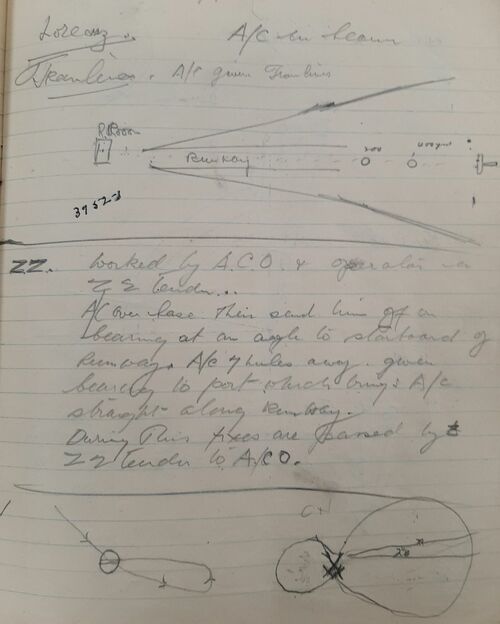 Lorenz. A/C in beam
Tramlines. A/C given Tramlines
R Room
Runway
200
3952-3
ZZ. Worked by A.C.O. & operator in
ZZ tender...
A/C over base. Then send him off on
bearing at an angle to starboard of
Runway. A/C 7 miles away. given
bearing to port which brings A/C
straight along Runway.
During This fixes are passed by
ZZ tender to A/CO.